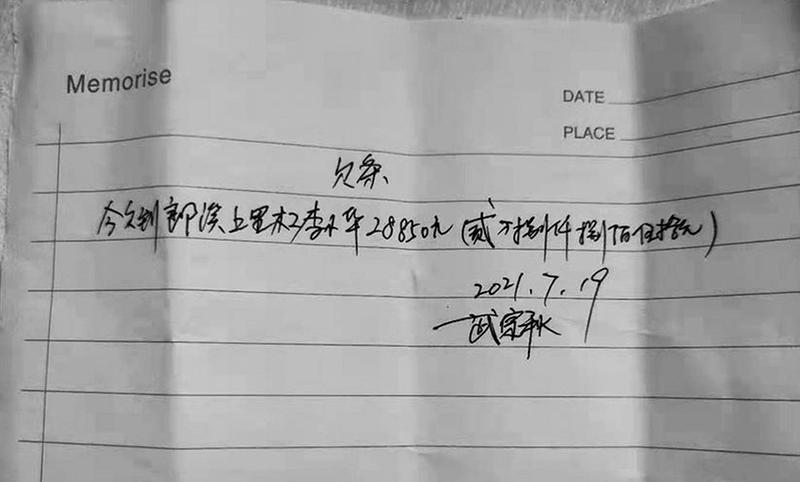 Memorise
DATE
PLACE
欠条
今欠到郭溪上里村李小华28850元(贰万捌仟捌佰伍拾元)
2021.7.19
武宗秋